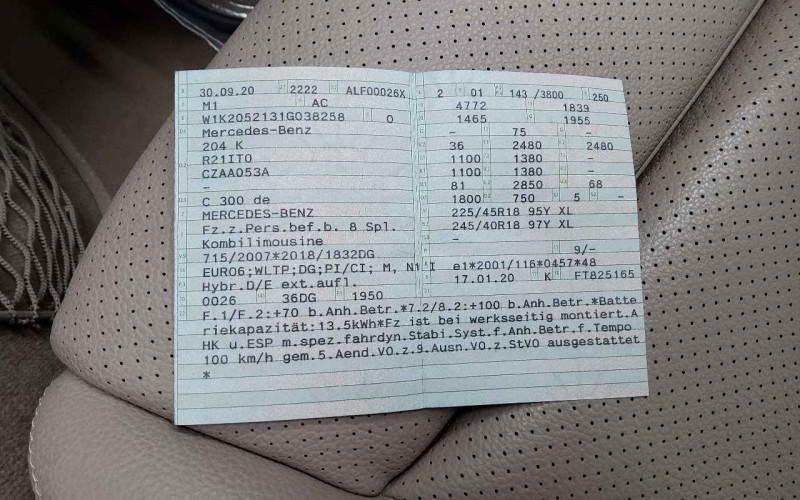 30.09.20 2222 ALF00026X
M1 AC
W1K2052131G038258 0
Mercedes-Benz
204 K
R21IT0
CZAA053A
–
C 300 de
MERCEDES-BENZ
Fz.z.Pers.bef.b. 8 Spl.
Kombilimousine
715/2007*2018/1832DG
EURO6;WLTP;DG;PI/CI; M, N1 I
Hybr.D/E ext.aufl.
0026 36DG 1950
2 01 143 /3800 250
4772 1839
1465 1955
– 75 –
36 2480 2480
1100 1380 –
1100 1380 –
81 2850 68
1800 750 5 –
225/45R18 95Y XL
245/40R18 97Y XL
–
9/–
e1*2001/116*0457*48
17.01.20 K FT825165
F.1/F.2:+70 b.Anh.Betr.*7.2/8.2:+100 b.Anh.Betr.*Batte
riekapazität:13.5kWh*Fz ist bei werksseitig montiert.A
HK u.ESP m.spez.fahrdyn.Stabi.Syst.f.Anh.Betr.f.Tempo
100 km/h gem.5.Aend.VO.z.9.Ausn.VO.z.StVO ausgestattet
*